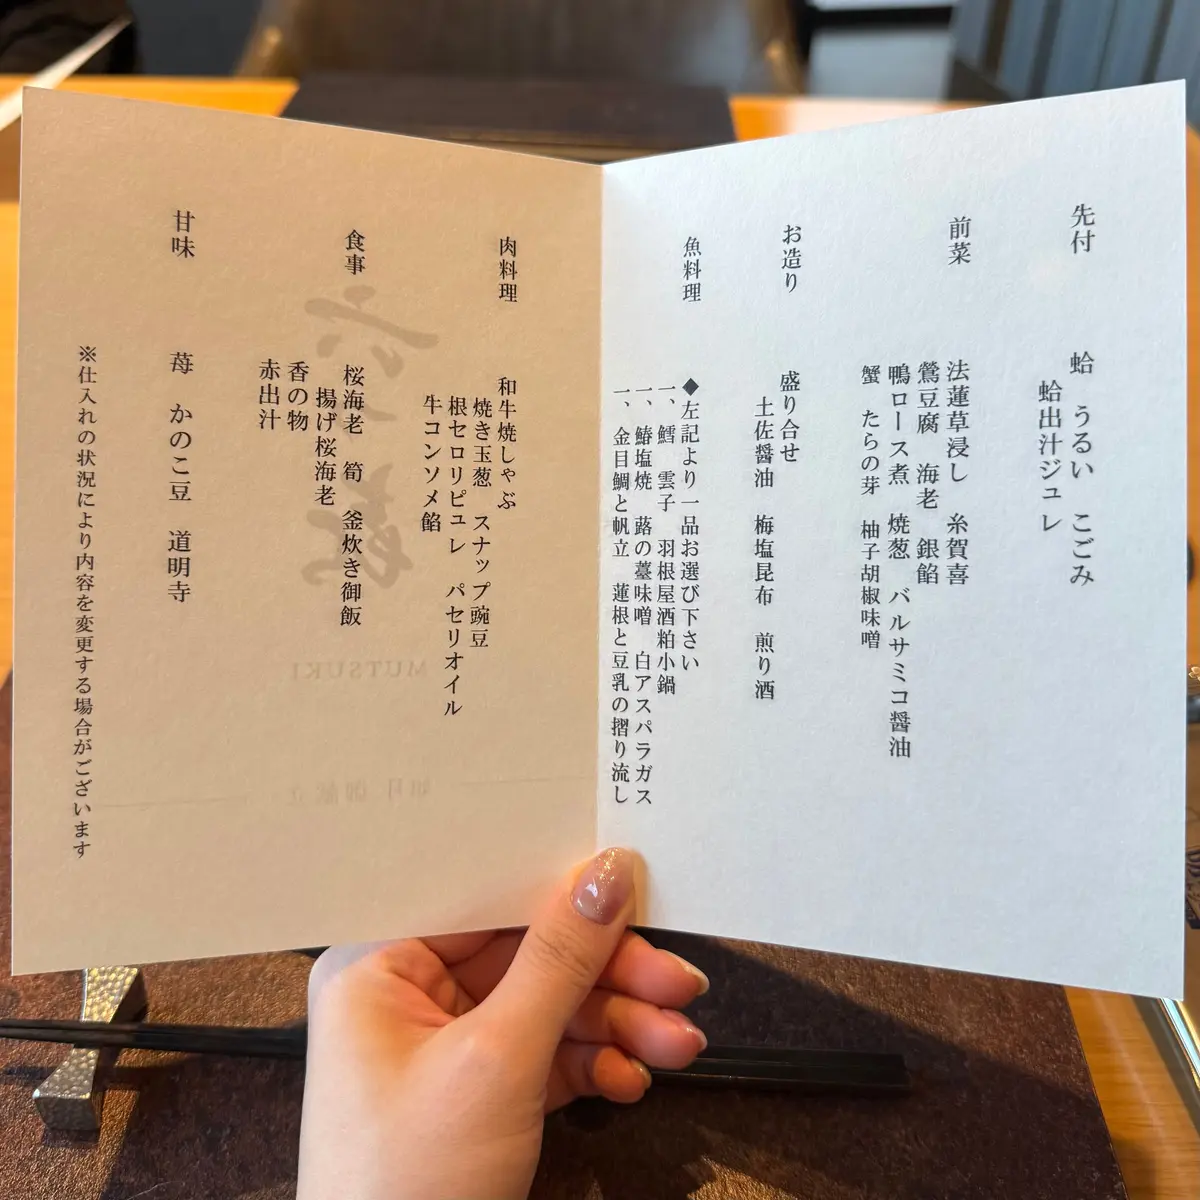 先付
蛤 うるい こごみ
蛤出汁ジュレ
前菜
法蓮草浸し 糸賀喜
鶯豆腐 海老 銀餡
鴨ロース煮 焼葱 バルサミコ醤油
蟹 たらの芽 柚子胡椒味噌
お造り
盛り合せ
土佐醤油 梅塩昆布 煎り酒
魚料理
◆左記より一品お選び下さい
一、鱈 雲子 羽根屋酒粕小鍋
一、鰆塩焼 蕗の薹味噌 白アスパラガス
一、金目鯛と帆立 蓮根と豆乳の摺り流し
肉料理
和牛焼しゃぶ
焼き玉葱 スナップ豌豆
根セロリピュレ パセリオイル
牛コンソメ餡
食事
桜海老 筍 釜炊き御飯
揚げ桜海老
香の物
赤出汁
甘味
苺 かのこ豆 道明寺
※仕入れの状況により内容を変更する場合がございます
MUTSUKI
如月 御献立